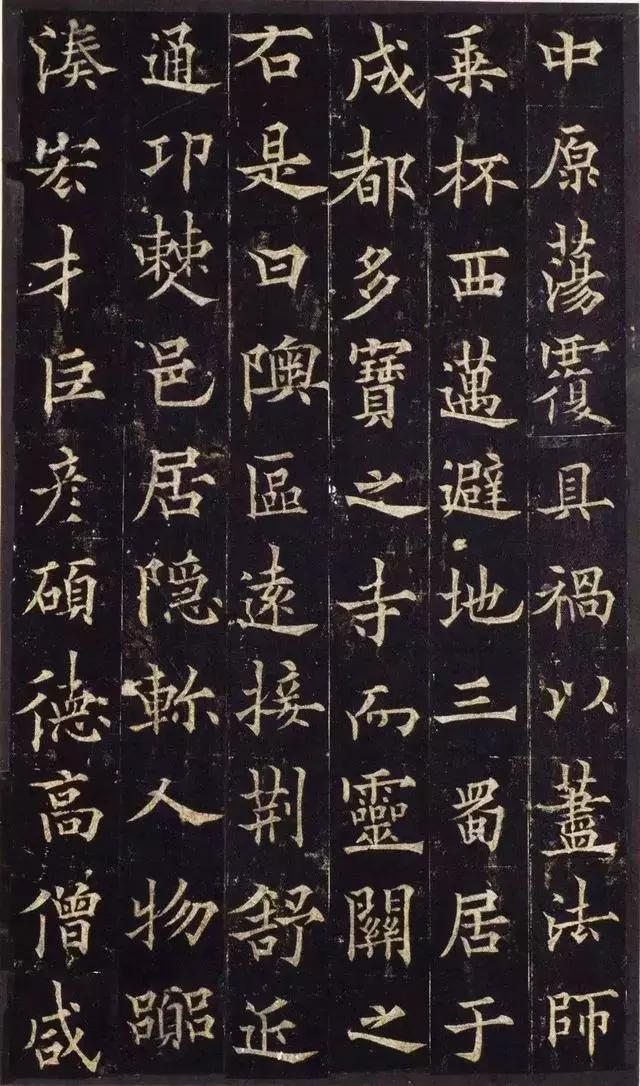 中原蕩覆具禍以藎法師
乘杯西邁避地三蜀居于
成都多寶之寺而靈關之
右是曰隩區遠接荊舒近
通邛僰邑居隱軫人物嚻
湊宏才巨彥碩德高僧咸